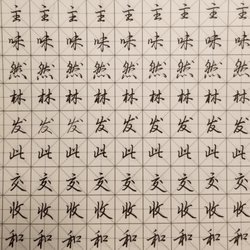 主主主主主主主主
味味味味味味味味
然然然然然然然然
林林林林林林林林
发发发发发发发发
此此此此此此此此
交交交交交交交交
收收收收收收收收
和和和和和和和和